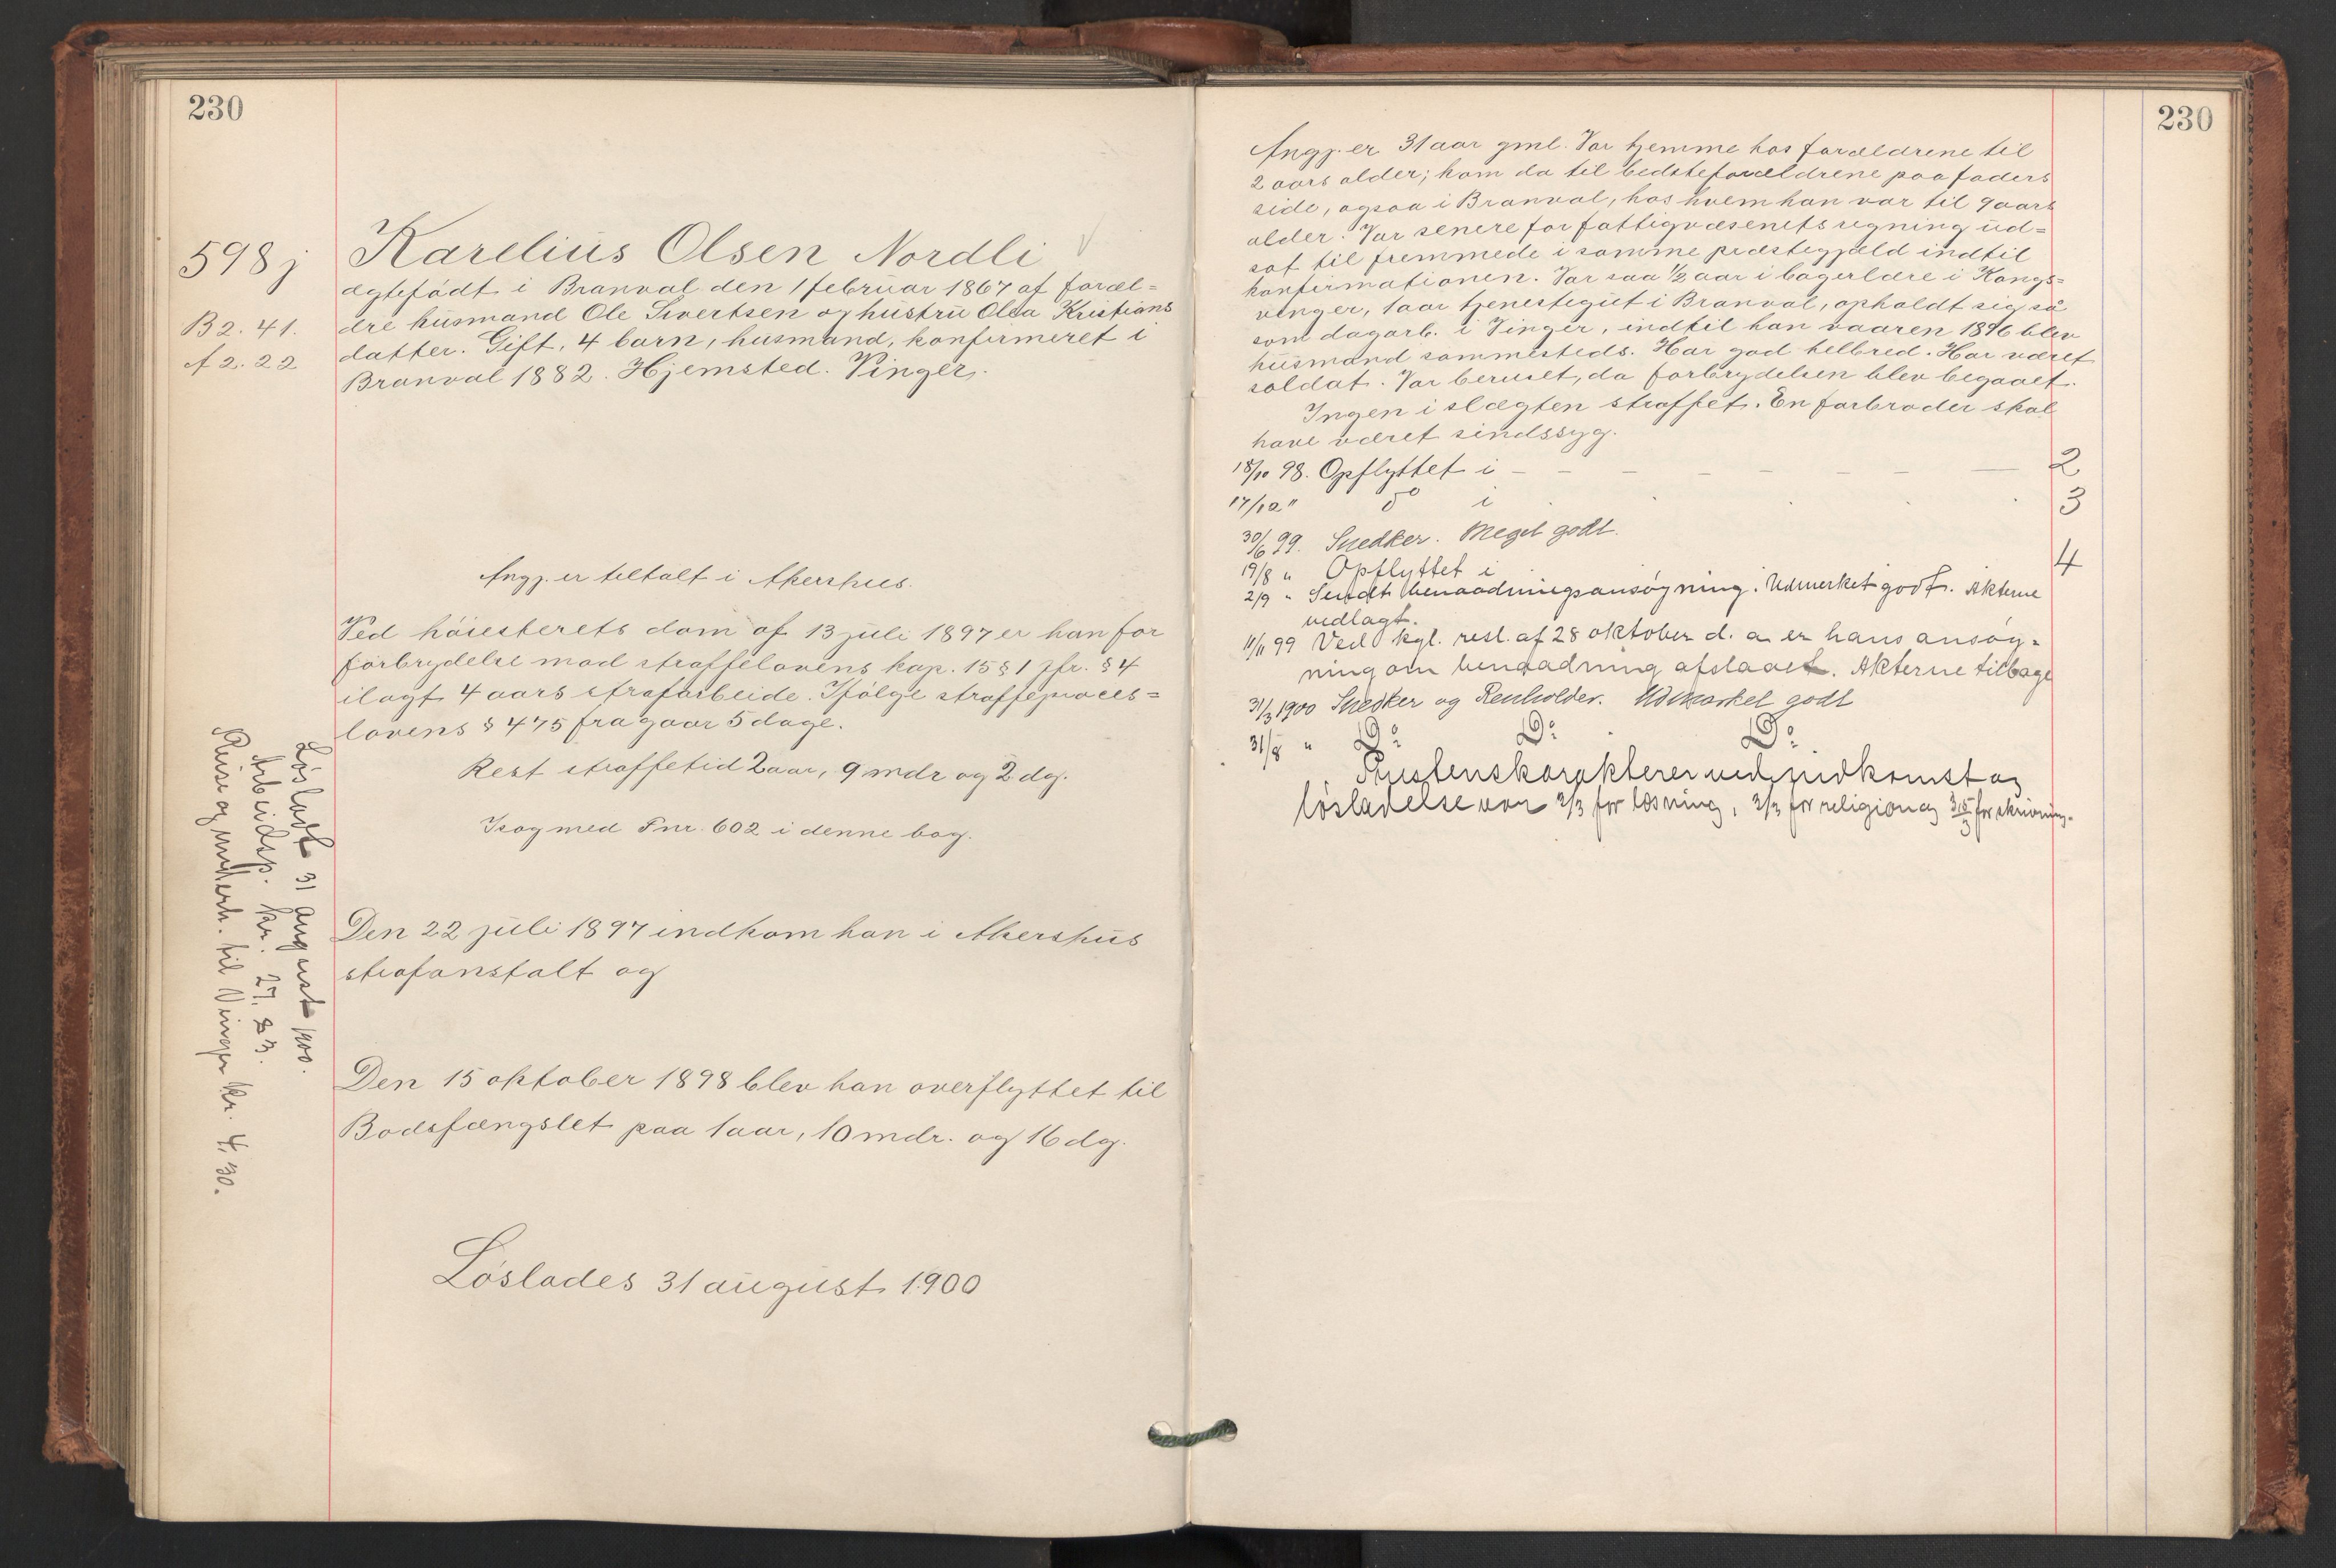 230
598 j
B 2. 41.
A 2. 22
Karelius Olsen Nordli
ægtefödt i Branval den 1 februar 1867 af foræl=
dre husmand Ole Sivertsen og hustru Olea Kristians
datter. Gift, 4 barn, husmand, konfirmeret i
Branval 1882. Hjemsted. Vinger.
Angj. er tiltalt i Akershus.
Ved höiesterets dom af 13 juli 1897 er han for
forbrydelse mod straffelovens kap. 15 § 1 jfr. § 4
ilagt 4 aars strafarbeide. Ifölge straffeproces=
lovens § 475 fragaar 5 dage.
Rest straffetid 2 aar, 9 mdr og 2 dg.
I sag med Fnr. 602 i denne bog.
Den 22 juli 1897 indkom han i Akershus
strafanstalt og
Den 15 oktober 1898 blev han overflyttet til
Bodsfængslet paa 1 aar, 10 mdr. og 16 dg.
Löslades 31 august 1900
Lösladt 31 august 1900.
Arbeidsp. kr. 27.83.
Reise og underh. til Vinger kr. 4,30.
230
Angj. er 31 aar gml. Var hjemme hos forældrene til
2 aars alder; kom da til bedsteforældrene paa faders
side, ogsaa i Branval, hos hvem han var til 9 aars
alder. Var senere for fattigvæsenets regning ud=
sat til fremmede i samme præstegjæld indtil
konfirmationen. Var saa 1/2 aar i bagerlære i Kongs=
vinger, 1 aar tjenestegut i Branval, opholdt sig så
som dagarb. i Vinger, indtil han vaaren 1896 blev
husmand sammesteds. Har god helbred. Har været
soldat. Var beruset, da forbrydelsen blev begaaet.
Ingen i slægten straffet. En farbroder skal
have været sindssyg.
18/10 98. Opflyttet i – – – – – – – 2
17/12 " do i 3
30/6 99. Snedker. Meget godt.
19/8 " Opflyttet i 4
2/9 " Sendt benaadningsansøgning. Udmerket godt. Akterne
vedlagt.
11/11 99 Ved kgl. resl. af 28 oktober d. a. er hans ansøg-
ning om benaadning afslaaet. Akterne tilbage
31/3 1900 Snedker og Renholder. Udmærket godt
31/8 " Do Do Do
Prestens karakterer ved indkomst og
löslatelse var 2/3 for læsning, 2/3 for religion og for skrivning.